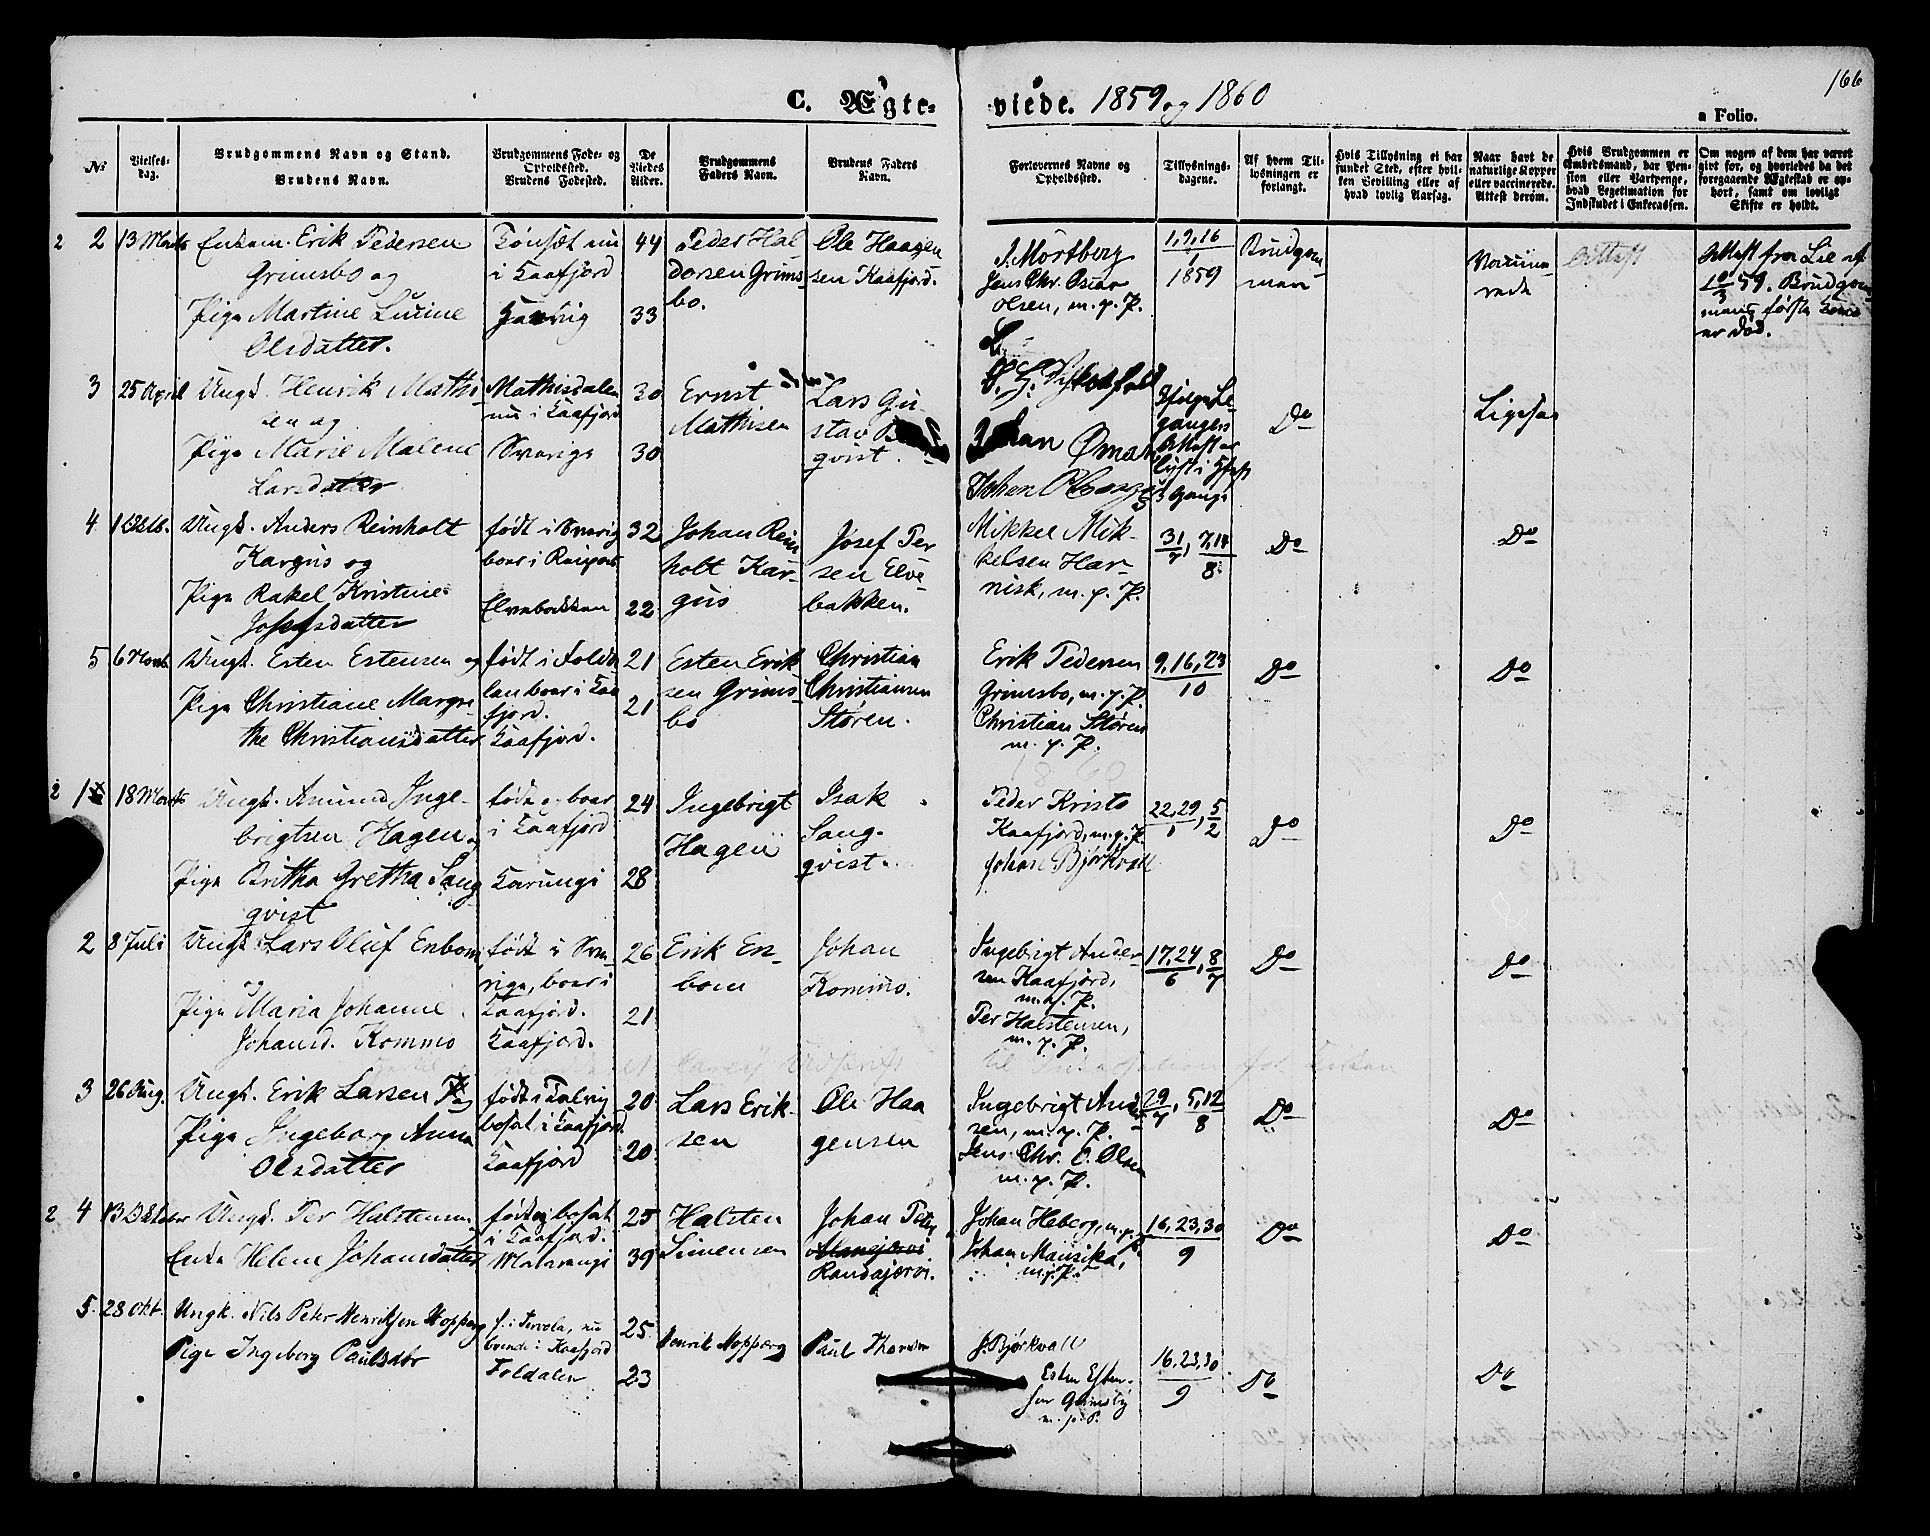 166
C. Ægte-
viede. 1859 og 1860
a Folio.
№
Vielses-
dag.
Brudgommens Navn og Stand.
Brudens Navn.
Brudgommens Føde- og
Opholdssted.
Brudens Fødested.
De
Viedes
Alder.
Brudgommens
Faders Navn.
Brudens Faders
Navn.
Forlovernes Navne og
Opholdssted.
Tillysnings-
dagene.
Af hvem Til-
lysningen er
forlangt.
Hvis Tillysning ei har
fundet Sted, efter hvil-
ken Bevilling eller af
hvad lovlig Aarsag.
Naar havt de
naturlige Kopper
eller vaccinerede.
Attest derom.
Hvis Brudgommen er
Embedsmand, har Pen-
sion eller Vartpenge,
hvad Legitimation for
Indskudet i Enkecassen.
Om nogen af dem har været
gift før, og hvorledes da det
foregaaende Ægteskab er op-
hørt, samt om lovligt
Skifte er holdt.
2 2 13 Marts
Enkem. Erik Pedersen
Grimsbo og
Pige Martine Lucine
Olsdatter.
Tønset nu
i Kaafjord
44
33
Peder Hal
dorsen Grims-
bo.
Ole Haagen
sen Kaafjord.
J. Mørtberg
Jens Chr. Oscar
Olsen, m. p. P.
1, 9, 16
1
1859
Brudgom-
men
Vaccine-
rede
Attest
Attest fra Lie af
10/3 59. Brudgom-
mens første Kone
er død.
3 25 April
Ungk. Henrik Mathi
sen og
Pige Marie Malene
Larsdatter
Mathisdalen
nu i Kaafjord
Sverige
30
30
Ernst
Mathisen
Lars Gu-
stav
qvist
Johan
3 gange
Do
Ligesaa
4
Ungk. Anders Reinholt
Kargus og
Pige Rakel Kristine
Josefsdatter
født i Sverig
boer i Raipas
Elvebakken
32
22
Johan Rein
holt Kar-
gus
Josef Per
sen Elve
bakken.
Mikkel Mik-
kelsen Har-
nisk, m. p. P.
31/7, 7,14/8
Do
Do
5 6 Novb.
Ungk. Esten Estensen og
Pige Christiane Margre
the Christiansdatter
født i Folda
len boer i Kaa
fjord.
Kaafjord.
21
21
Esten Erik
sen Grims-
bo
Christian
Christiansen
Støren.
Erik Pedersen
Grimsbo, m. p. P.
Christian Støren
m. p. P.
9, 16, 23
10
Do
Do
2 1 18 Marts
Ungk. Amund Inge-
brigtsen Hagen og
Pige Britha Gretha Lang
qvist
født og boer
i Kaafjord
Karungi
24
28
Ingebrigt
Hagen
Isak
Lang-
qvist.
Peder Kristo
Kaafjord, m. p. P.
Johan Bjørkvall
22,29/1, 5/2
Do
Do
2 8 Juli
Ungk. Lars Oluf Enbom
og
Pige Maria Johanne
Johansd. Kommo
født i Sve-
rige, boer i
Kaafjord.
Kaafjord.
26
21
Erik En-
bom
Johan
Kommo.
Ingebrigt Ander-
sen Kaafjord,
m. p. P.
Per Halstensen,
m. p. P.
17,24/6, 8/7
Do
Do
3 26 Aug.
Ungk. Erik Larsen
Pige Ingeborg Anna
Olsdatter
født i Talvig
bosat i Kaafjord.
Kaafjord
20
20
Lars Erik-
sen
Ole Haa
gensen
Ingebrigt And
sen, m. p. P.
Jens Chr. O. Olsen
m. p. P.
29/7, 5,12/8
Do
Do
2 4 13 Oktober
Ungk. Per Halstensen
Enke Helene Johansdatter
født og bosat
i Kaafjord.
Matarengi
25
39
Halsten
Simensen
Johan Peter
Randajærvi.
Johan Heberg, m. p.
Johan Mausika,
m. p. P.
16, 23, 30
9
Do
Do
5. 28 Okt.
Ungk. Nils Peter Henriksen Hopperg
Pige Ingeborg Paulsdtr
f. i Tervola, nu
boende i Kaafjord
Foldalen
25
23
Henrik Hopperg
Paul Thorsen
J. Bjørkvall
Esten Esten-
sen Grimsby
m. p. P.
16, 23, 30
9
Do
Do